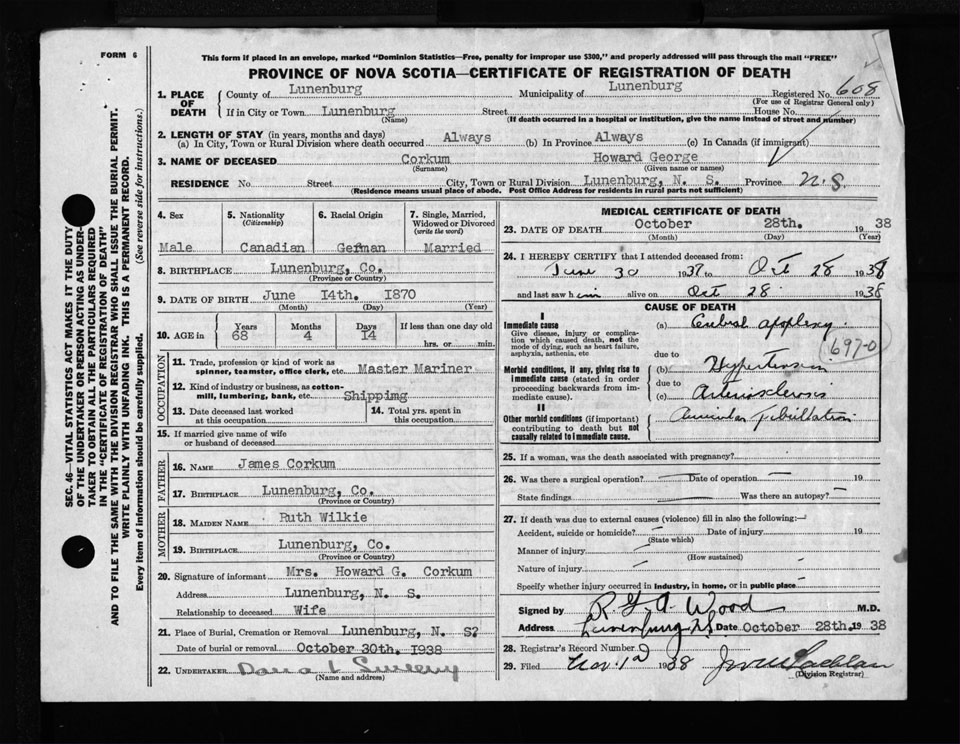 FORM 6
This form if placed in an envelope, marked "Dominion Statistics—Free, penalty for improper use $300," and properly addressed will pass through the mail "FREE"
PROVINCE OF NOVA SCOTIA—CERTIFICATE OF REGISTRATION OF DEATH
SEC. 46—VITAL STATISTICS ACT MAKES IT THE DUTY
OF THE UNDERTAKER OR PERSON ACTING AS UNDER-
TAKER TO OBTAIN ALL THE PARTICULARS REQUIRED
IN THE "CERTIFICATE OF REGISTRATION OF DEATH"
AND TO FILE THE SAME WITH THE DIVISION REGISTRAR WHO SHALL ISSUE THE BURIAL PERMIT.
WRITE PLAINLY WITH UNFADING INK. THIS IS A PERMANENT RECORD.
Every item of information should be carefully supplied. (See reverse side for instructions.)
1. PLACE OF DEATH
County of Lunenburg Municipality of Lunenburg Registered No. 608
(For use of Registrar General only)
If in City or Town Lunenburg Street House No.
(Name) (If death occurred in a hospital or institution, give the name instead of street and number)
2. LENGTH OF STAY (in years, months and days)
(a) In City, Town or Rural Division where death occurred Always (b) In Province Always (c) In Canada (if immigrant)
3. NAME OF DECEASED Corkum Howard George
(Surname) (Given name or names)
RESIDENCE No. Street City, Town or Rural Division Lunenburg, N. S. Province N.S.
(Residence means usual place of abode. Post Office Address for residents in rural parts not sufficient)
4. Sex 5. Nationality (Citizenship) 6. Racial Origin 7. Single, Married, Widowed or Divorced (write the word)
Male Canadian German Married
8. BIRTHPLACE Lunenburg, Co.
(Province or Country)
9. DATE OF BIRTH June 14th. 1870
(Month) (Day) (Year)
10. AGE in Years Months Days If less than one day old
68 4 14 hrs. or min.
OCCUPATION
11. Trade, profession or kind of work as
spinner, teamster, office clerk, etc. Master Mariner
12. Kind of industry or business, as cotton-
mill, lumbering, bank, etc. Shippimg
13. Date deceased last worked at this occupation 14. Total yrs. spent in this occupation
15. If married give name of wife
or husband of deceased
FATHER
16. NAME James Corkum
17. BIRTHPLACE Lunenburg, Co.
(Province or Country)
MOTHER
18. MAIDEN NAME Ruth Wilkie
19. BIRTHPLACE Lunenburg, Co.
(Province or Country)
20. Signature of informant Mrs. Howard G. Corkum
Address Lunenburg, N. S.
Relationship to deceased Wife
21. Place of Burial, Cremation or Removal Lunenburg, N. S?
Date of burial or removal October 30th. 1938
22. UNDERTAKER
(Name and Address)
MEDICAL CERTIFICATE OF DEATH
23. DATE OF DEATH October 28th. 1938
(Month) (Day) (Year)
24. I HEREBY CERTIFY that I attended deceased from:
June 30 1937 to Oct 28 1938
and last saw him alive on Oct 28 1938
CAUSE OF DEATH
I
Immediate cause
Give disease, injury or complica-
tion which caused death, not the
mode of dying, such as heart failure,
asphyxia, asthenia, etc
(a) Cerebral apoplexy
697-0
due to
Morbid conditions, if any, giving rise to
immediate cause (stated in order
proceeding backwards from im-
mediate cause).
(b) Hypertension
due to
(c) Arteriosclerosis
II
Other morbid conditions (if important)
contributing to death but not
causally related to immediate cause.
Auricular fibrillation
25. If a woman, was the death associated with pregnancy?
26. Was there a surgical operation? Date of operation 19
State findings Was there an autopsy?
27. If death was due to external causes (violence) fill in also the following:
Accident, suicide or homicide? Date of injury 19
(State which)
Manner of injury
(How sustained)
Nature of injury
Specify whether injury occurred in industry, in home, or in public place
Signed by R. G. A. Wood M.D.
Address Lunenburg N.S. Date October 28th. 1938
28. Registrar's Record Number
29. Filed Nov. 1 1938
(Division Registrar)